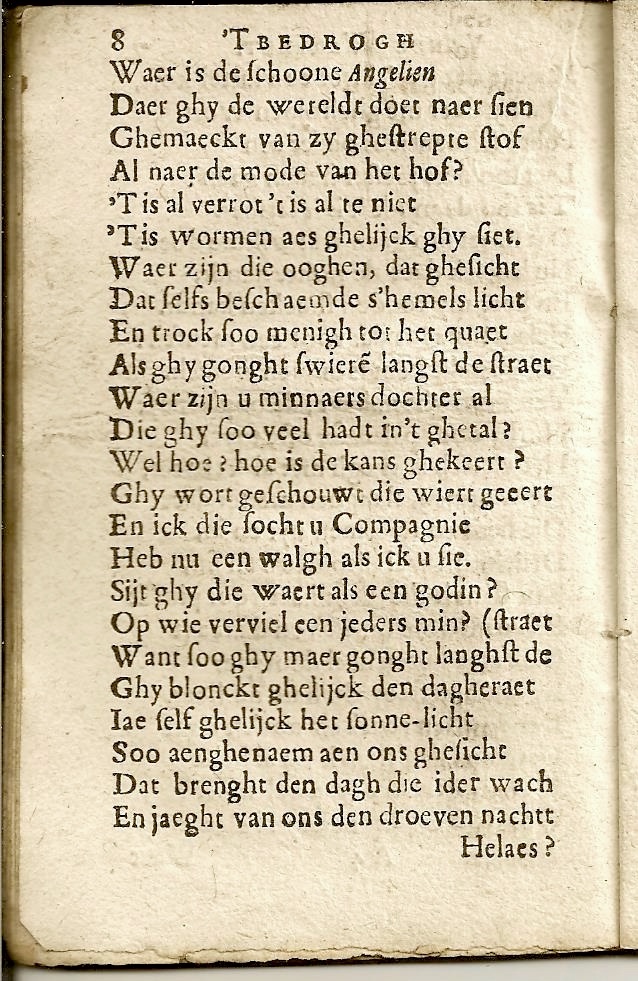 8 'T BEDROGH
Waer is de ſchoone Angelien
Daer ghy de wereldt doet naer ſien
Ghemaeckt van zy gheſtrepte ſtof
Al naer de mode van het hof?
'Tis al verrot 't is al te niet
'Tis wormen aes ghelijck ghy ſiet.
Waer zijn die ooghen, dat gheſicht
Dat ſelfs beſchaemde s'hemels licht
En trock ſoo menigh tot het quaet
Als ghy gonght ſwierē langſt de ſtraet
Waer zijn u minnaers dochter al
Die ghy ſoo veel hadt in't ghetal?
Wel hoe ? hoe is de kans ghekeert ?
Ghy wort geſchouwt die wiert geeert
En ick die ſocht u Compagnie
Heb nu een walgh als ick u ſie.
Sijt ghy die waert als een godin?
Op wie verviel een jeders min? (ſtraet
Want ſoo ghy maer gonght langhſt de
Ghy blonckt ghelijck den dagheraet
Iae ſelf ghelijck het ſonne-licht
Soo aenghenaem aen ons gheſicht
Dat brenght den dagh die ider wach
En jaeght van ons den droeven nachtt
Helaes ?